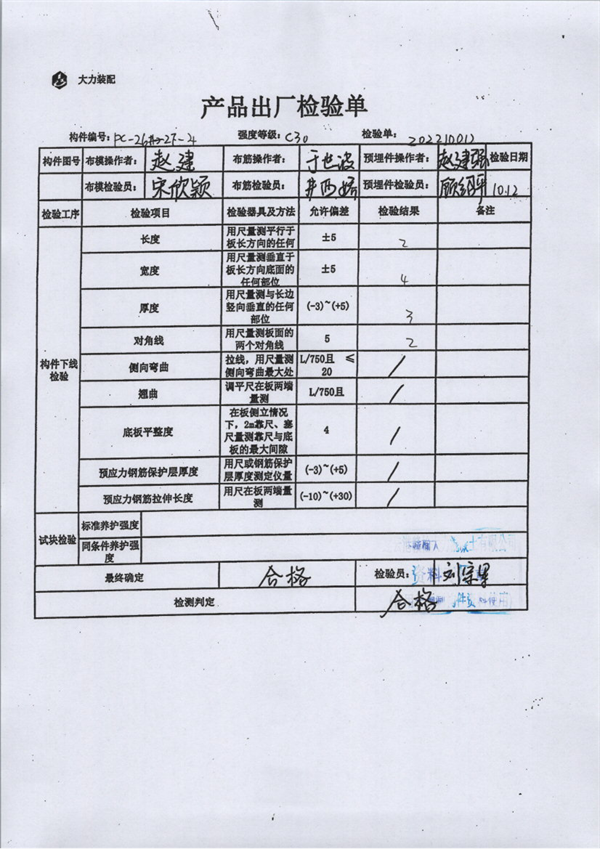 大力装配
产品出厂检验单
构件编号: 强度等级: C30 检验单: 20221012
构件图号 布模操作者: 赵建 布筋操作者: 于世波 预埋件操作者: 赵建强 检验日期
布模检验员: 宋欣颖 布筋检验员: 预埋件检验员: 10.12
检验工序 检验项目 检验器具及方法 允许偏差 检验结果 备注
构件下线检验
长度 用尺量测平行于板长方向的任何 ±5 2
宽度 用尺量测垂直于板长方向底面的任何部位 ±5 4
厚度 用尺量测与长边竖向垂直的任何部位 (-3)~(+5) 3
对角线 用尺量测板面的两个对角线 5 2
侧向弯曲 拉线，用尺量测侧向弯曲最大处 L/750且 ≤20 /
翘曲 调平尺在板两端量测 L/750且 /
底板平整度 在板侧立情况下，2m靠尺、塞尺量测靠尺与底板的最大间隙 4 /
预应力钢筋保护层厚度 用尺或钢筋保护层厚度测定仪量 (-3)~(+5) /
预应力钢筋拉伸长度 用尺在板两端量测 (-10)~(+30) /
试块检验 标准养护强度
同条件养护强度
最终确定 合格 检验员:
检测判定 合格